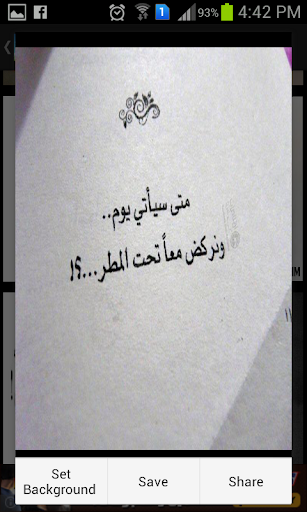 93%
4:42 PM
متى سيأتي يوم..
ونركض معاً تحت المطر...؟!
Set Background
Save
Share